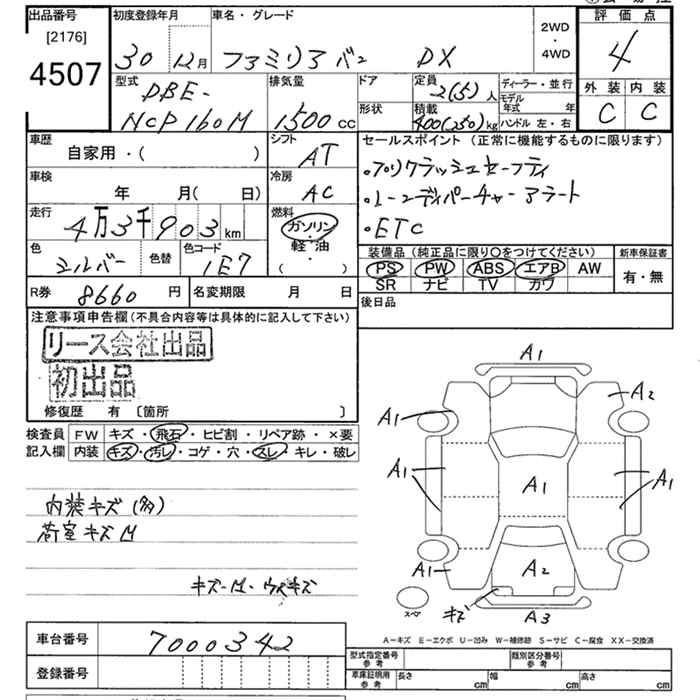 出品番号
[2176]
4507
初度登録年月
30年 12月
車名・グレード
ファミリアバン DX
2WD
・
4WD
評価点
4
外装 内装
C C
型式
DBE-
NCP160M
排気量
1500 cc
ドア
形状
定員
2(5)人
積載
400(250)kg
ディーラー・並行
モデル年式 年
ハンドル 左・右
車歴
自家用・( )
シフト
AT
車検
年 月( 日)
冷房
AC
走行
4万3千903 km
燃料
ガソリン
・
軽・油
( )
色
シルバー
色替
色コード
1E7
R券 8660 円
名変期限 月 日
セールスポイント(正常に機能するものに限ります)
・プリクラッシュセーフティ
・レーンディパーチャーアラート
・ETC
装備品(純正品に限り○をつけてください)
PS PW ABS エアB AW
SR ナビ TV カワ
新車保証書
有・無
後日品
注意事項申告欄(不具合内容等は具体的に記入して下さい)
リース会社出品
初出品
修復歴 有 〔箇所 〕
検査員
記入欄
FW キズ・飛石・ヒビ割・リペア跡・×要
内装 キズ・汚レ・コゲ・穴・スレ・キレ・破レ
内装キズ(多)
荷室キズM
キズ-M・ウスキズ
A1
A2
A1
A1
A1
A1
A1
A2
キズ
A3
スペア
A-キズ E-エクボ U-凹み W-補修跡 S-サビ C-腐食 XX-交換済
車台番号 7000342
登録番号
型式指定番号
参考
類別区分番号
参考
車庫証明用
参考
長さ cm
幅 cm
高さ cm